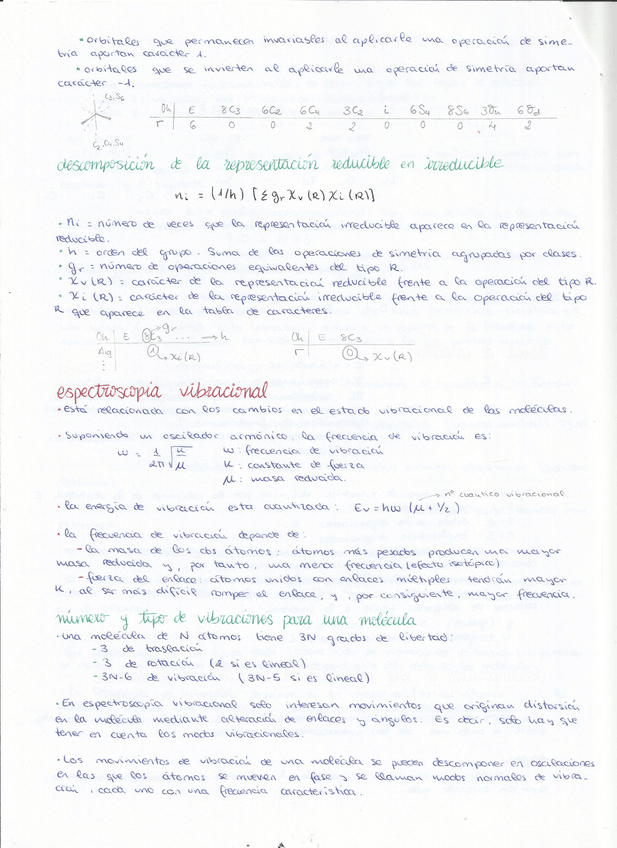 • orbitales que permanecen invariables al aplicarle una operación de sime-
tría aportan carácter 1.
• orbitales que se invierten al aplicarle una operación de simetría aportan
carácter -1.
C3, S6
C2, C4, S4
Oh | E 8C3 6C2 6C4 3C2 i 6S4 8S6 3σh 6σd
Γ | 6 0 0 2 2 0 0 0 4 2
descomposición de la representación reducible en irreducible
ni = (1/h) [Σ gr χv(R) χi(R)]
• ni = número de veces que la representación irreducible aparece en la representación
reducible.
• h = orden del grupo. Suma de las operaciones de simetría agrupadas por clases.
• gr = número de operaciones equivalentes del tipo R.
• χv(R) = carácter de la representación reducible frente a la operación del tipo R.
• χi(R) = carácter de la representación irreducible frente a la operación del tipo
R que aparece en la tabla de caracteres.
Oh | E 8C3 ... → h
gr
A1g | 1 → χi(R)
Oh | E 8C3
Γ | 0 → χv(R)
espectroscopia vibracional
• Está relacionada con los cambios en el estado vibracional de las moléculas.
• Suponiendo un oscilador armónico, la frecuencia de vibración es:
ω = 1/2π √κ/μ
ω: frecuencia de vibración
κ: constante de fuerza
μ: masa reducida.
→ nº cuántico vibracional
• la energía de vibración esta cuantizada: Ev = hω (μ + 1/2)
• la frecuencia de vibración depende de:
- la masa de los dos átomos: átomos más pesados producen una mayor
masa reducida y, por tanto, una menor frecuencia (efecto isotópico)
- fuerza del enlace: átomos unidos con enlaces múltiples tendrán mayor
κ, al ser más difícil romper el enlace, y, por consiguiente, mayor frecuencia.
número y tipo de vibraciones para una molécula
• una molécula de N átomos tiene 3N grados de libertad:
- 3 de traslación
- 3 de rotación (2 si es lineal)
- 3N-6 de vibración (3N-5 si es lineal)
• En espectroscopia vibracional solo interesan movimientos que originan distorsión
en la molécula mediante alteración de enlaces y ángulos. Es decir, solo hay que
tener en cuenta los modos vibracionales.
• Los movimientos de vibración de una molécula se pueden descomponer en oscilaciones
en las que los átomos se mueven en fase y se llaman modos normales de vibra-
ción, cada uno con una frecuencia característica.